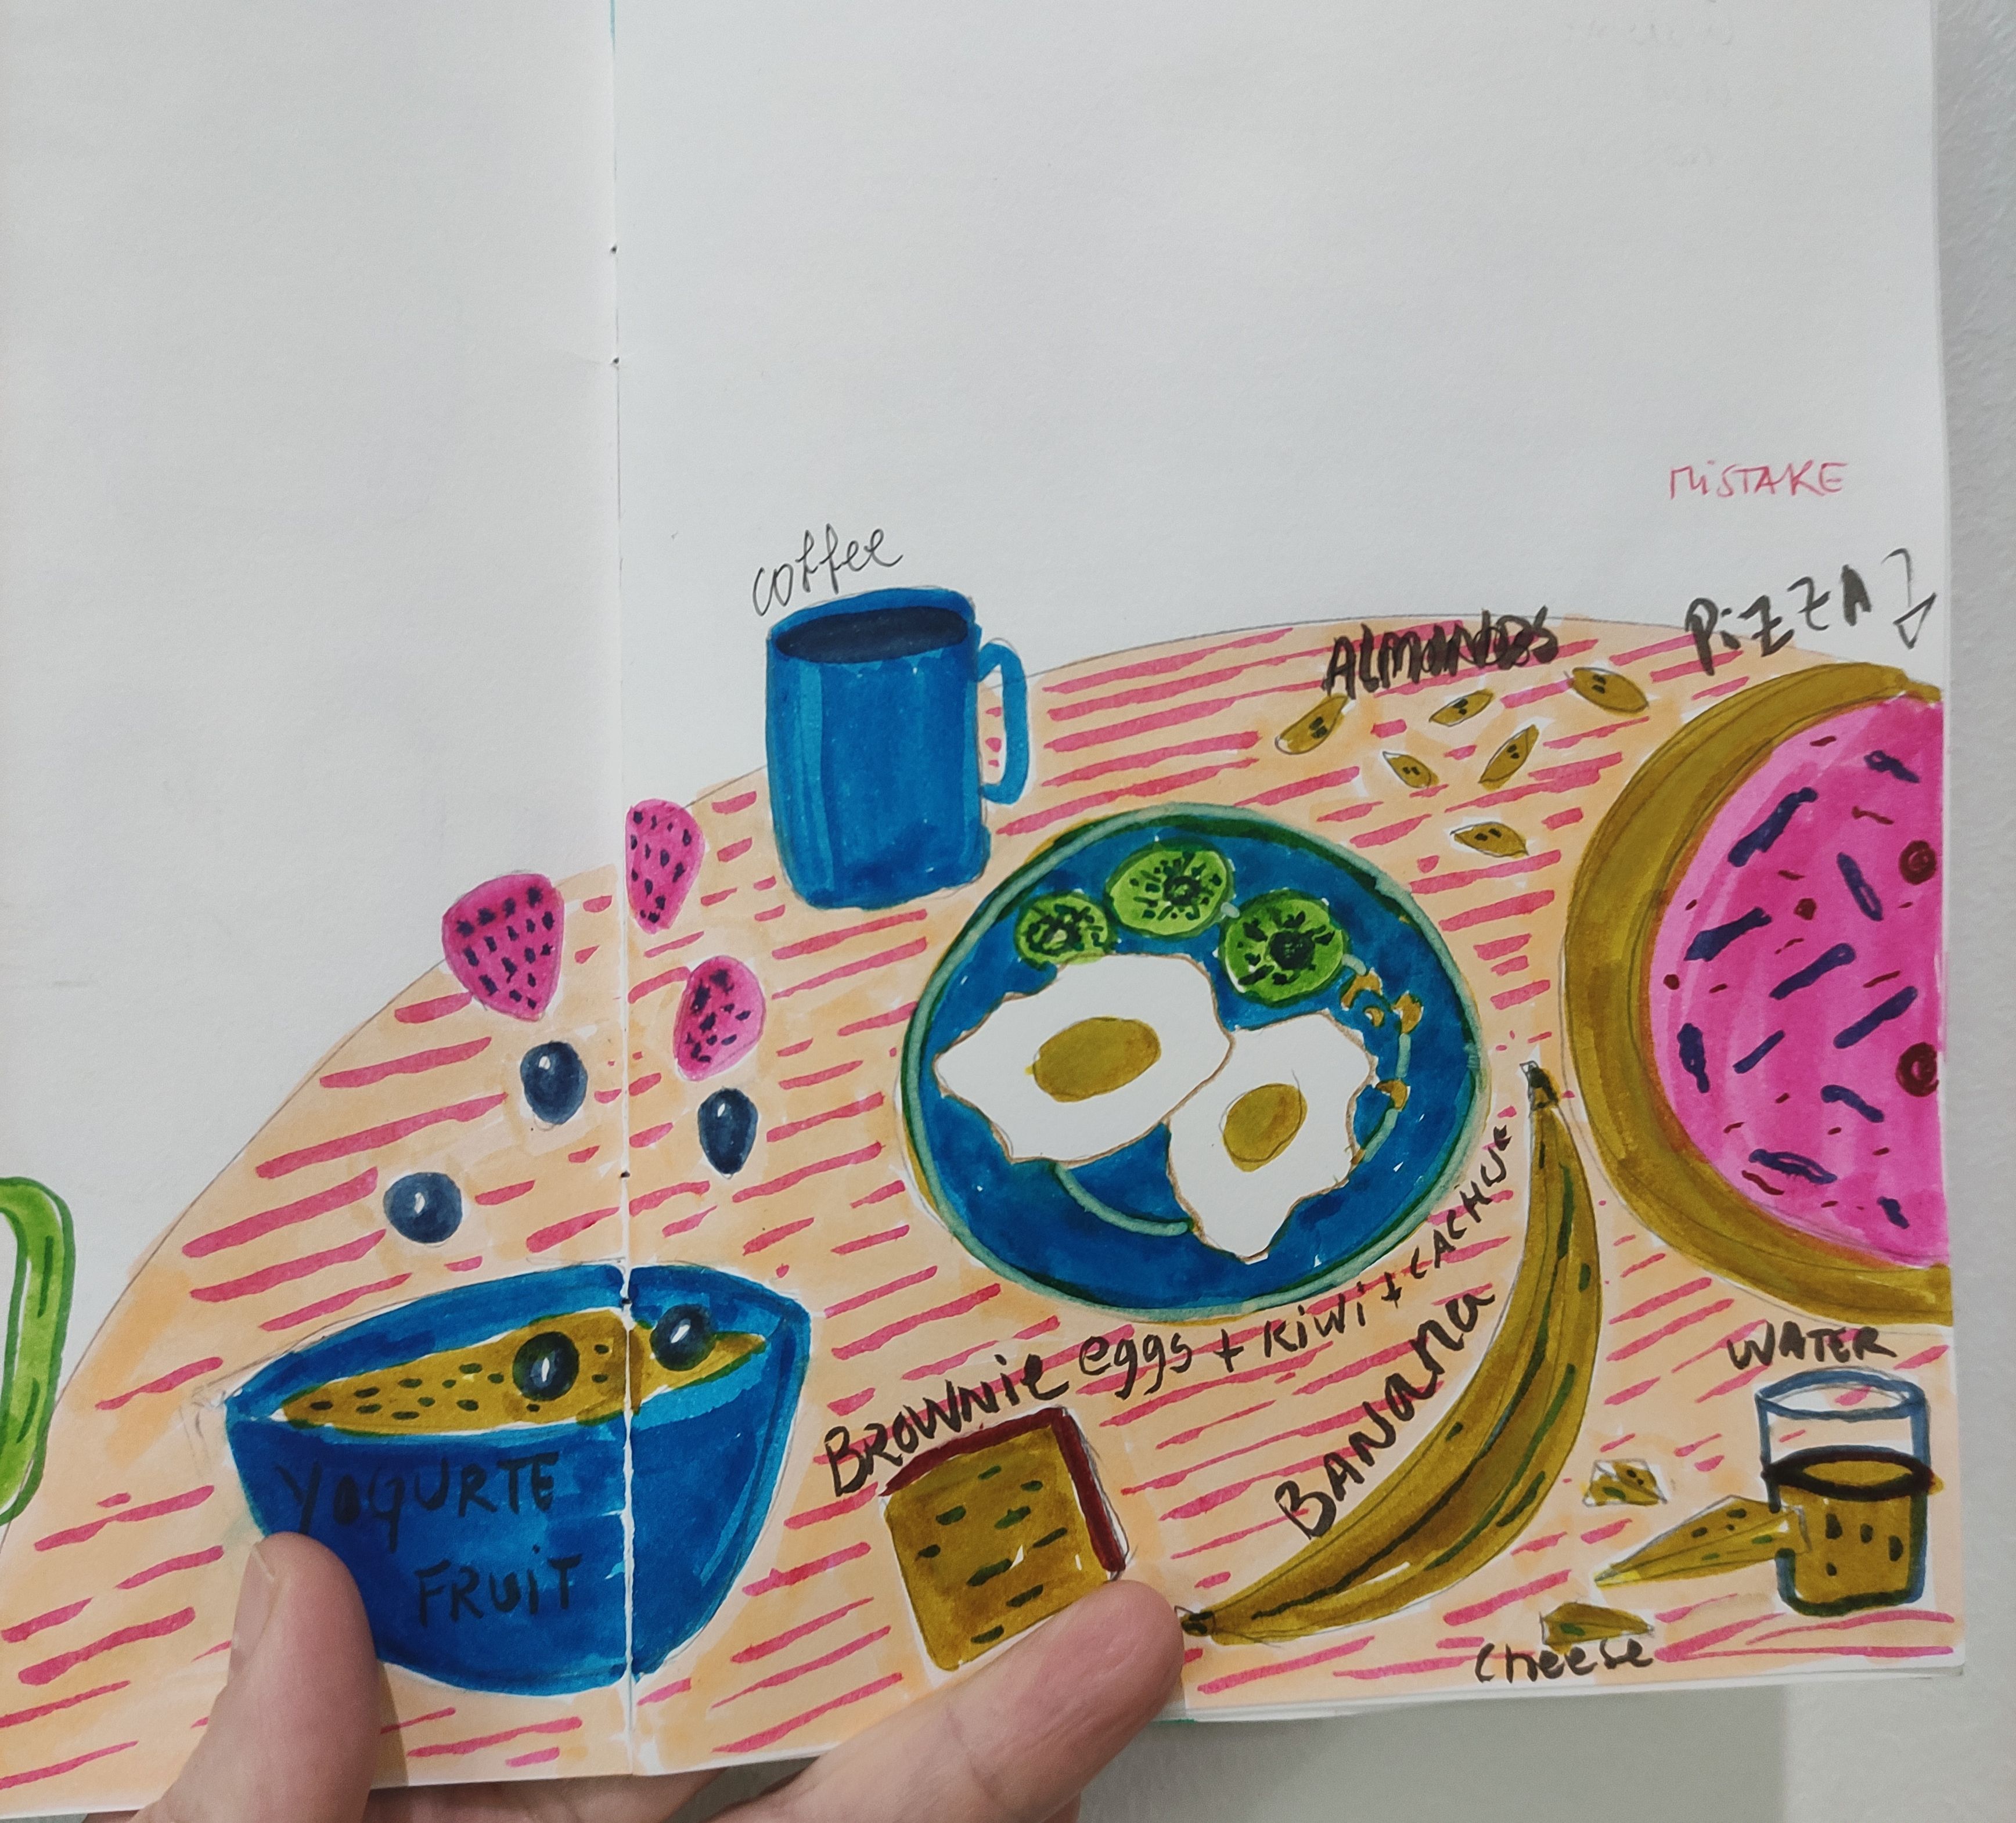 MISTAKE
coffee
PIZZA
ALMONDS
eggs + KiWi + CACHUE
BROWNIE
BANANA
WATER
YOGURTE
FRUIT
Cheese